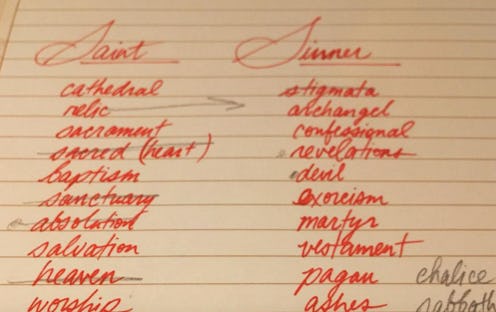 Saint Sinner
cathedral stigmata
relic archangel
sacrament confessional
sacred (heart) revelations
baptism devil
sanctuary exorcism
absolution martyr
salvation vestament
heaven pagan chalice
worship ashes sabboth